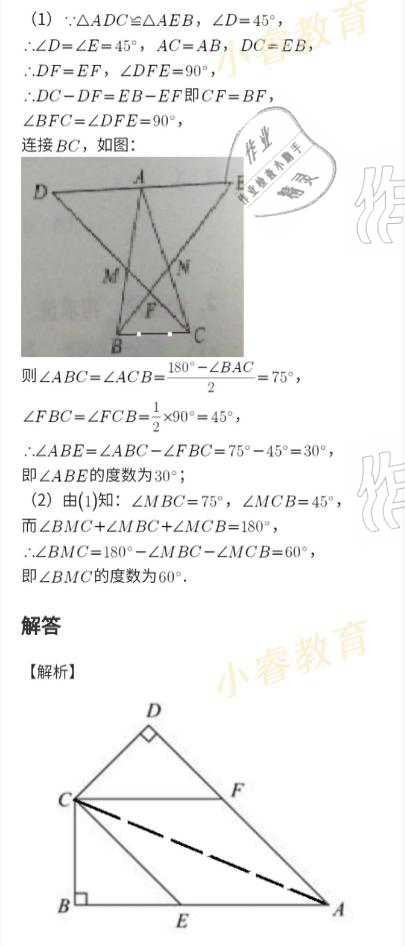 (1) ∵△ADC≌△AEB，∠D=45°，
∴∠D=∠E=45°，AC=AB，DC=EB，
∴DF=EF，∠DFE=90°，
∴DC−DF=EB−EF即CF=BF，
∠BFC=∠DFE=90°，
连接BC，如图：
作业
作业检查小助手
精灵
小睿教育
作
A
D
E
M
N
F
B
C
则∠ABC=∠ACB=(180°−∠BAC)/2=75°，
∠FBC=∠FCB=1/2×90°=45°，
∴∠ABE=∠ABC−∠FBC=75°−45°=30°，
即∠ABE的度数为30°；
(2) 由(1)知：∠MBC=75°，∠MCB=45°，
而∠BMC+∠MBC+∠MCB=180°，
∴∠BMC=180°−∠MBC−∠MCB=60°，
即∠BMC的度数为60°.
作
解答
小睿教育
【解析】
D
C
F
B
E
A